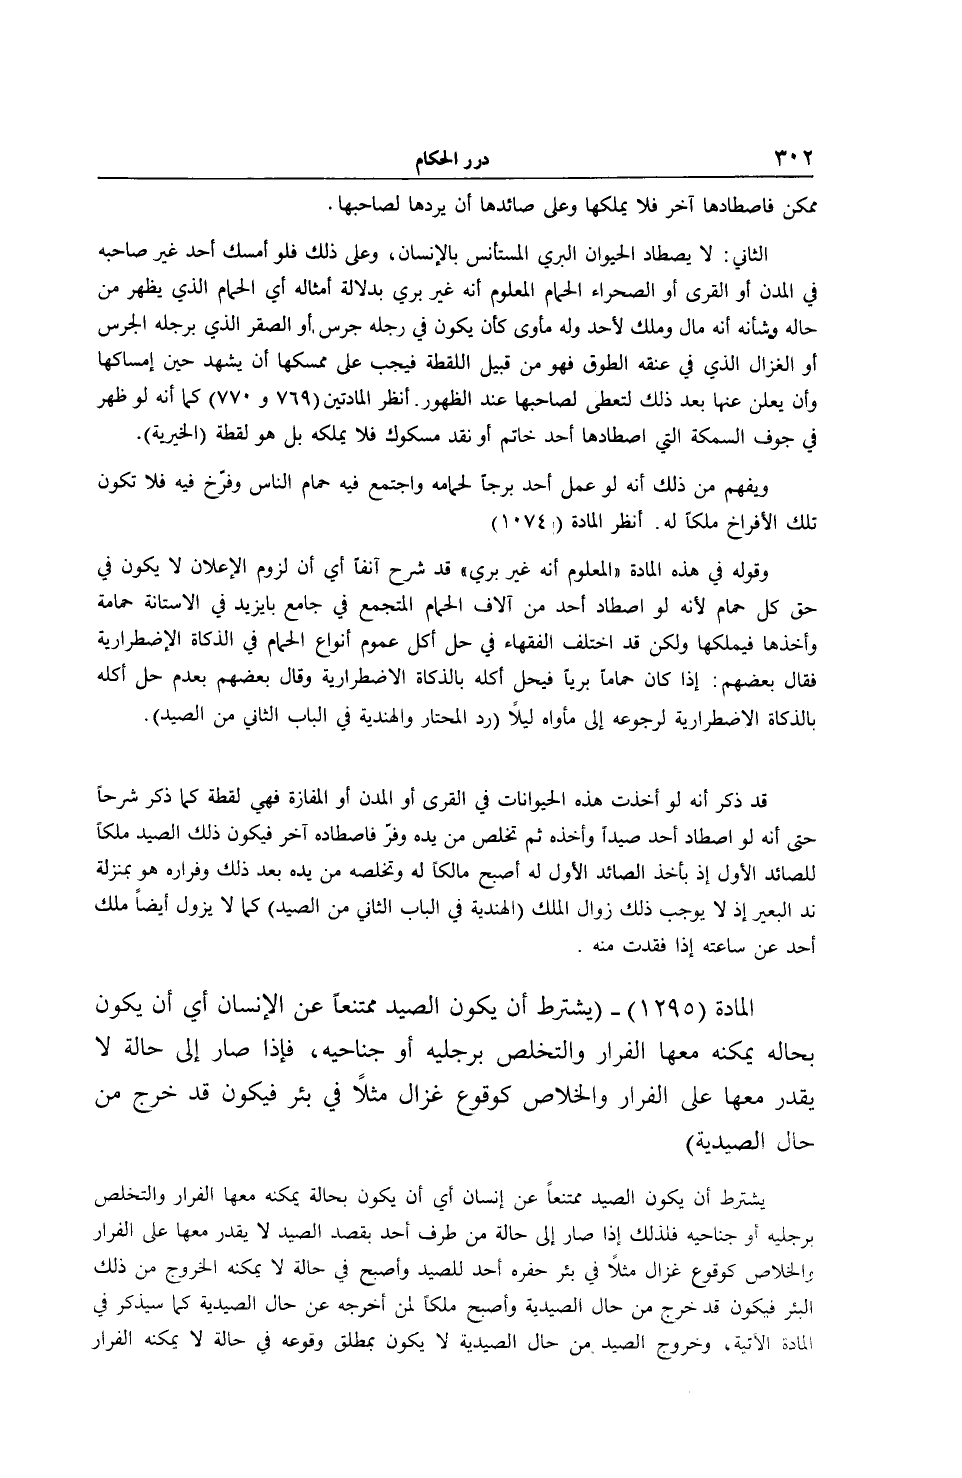 ٣٠٢ درر الحكام
ممكن فاصطادها آخر فلا يملكها وعلى صائدها أن يردها لصاحبها .
الثاني : لا يصطاد الحيوان البري المستأنس بالإنسان، وعلى ذلك فلو أمسك أحد غير صاحبه
في المدن أو القرى أو الصحراء الحمام المعلوم أنه غير بري بدلالة أمثاله أي الحمام الذي يظهر من
حاله وشأنه أنه مال وملك لأحد وله مأوى كأن يكون في رجله جرس أو الصقر الذي برجله الجرس
أو الغزال الذي في عنقه الطوق فهو من قبيل اللقطة فيجب على ممسكها أن يشهد حين إمساكها
وأن يعلن عنها بعد ذلك لتعطى لصاحبها عند الظهور . أنظر المادتين (٧٦٩ و ٧٧٠) كما أنه لو ظهر
في جوف السمكة التي اصطادها أحد خاتم أو نقد مسكوك فلا يملكه بل هو لقطة (الخيرية).
ويفهم من ذلك أنه لو عمل أحد برجاً لحمامه واجتمع فيه حمام الناس وفرّخ فيه فلا تكون
تلك الأفراخ ملكاً له. أنظر المادة (١٠٧٤)
وقوله في هذه المادة «المعلوم أنه غير بري» قد شرح آنفاً أي أن لزوم الإعلان لا يكون في
حق كل حمام لأنه لو اصطاد أحد من آلاف الحمام المتجمع في جامع بايزيد في الاستانة حمامة
وأخذها فيملكها ولكن قد اختلف الفقهاء في حل أكل عموم أنواع الحمام في الذكاة الإضطرارية
فقال بعضهم : إذا كان حماماً برياً فيحل أكله بالذكاة الاضطرارية وقال بعضهم بعدم حل أكله
بالذكاة الاضطرارية لرجوعه إلى مأواه ليلًا (رد المحتار والهندية في الباب الثاني من الصيد).
قد ذكر أنه لو أخذت هذه الحيوانات في القرى أو المدن أو المفازة فهي لقطة كما ذكر شرحاً
حتى أنه لو اصطاد أحد صيداً وأخذه ثم تخلص من يده وفرّ فاصطاده آخر فيكون ذلك الصيد ملكاً
للصائد الأول إذ بأخذ الصائد الأول له أصبح مالكاً له وتخلصه من يده بعد ذلك وفراره هو بمنزلة
ند البعير إذ لا يوجب ذلك زوال الملك (الهندية في الباب الثاني من الصيد) كما لا يزول أيضاً ملك
أحد عن ساعته إذا فقدت منه .
المادة (١٢٩٥) - (يشترط أن يكون الصيد ممتنعاً عن الإنسان أي أن يكون
بحاله يمكنه معها الفرار والتخلص برجليه أو جناحيه، فإذا صار إلى حالة لا
يقدر معها على الفرار والخلاص كوقوع غزال مثلًا في بئر فيكون قد خرج من
حال الصيدية)
يشترط أن يكون الصيد ممتنعاً عن إنسان أي أن يكون بحالة يمكنه معها الفرار والتخلص
برجليه أو جناحيه فلذلك إذا صار إلى حالة من طرف أحد بقصد الصيد لا يقدر معها على الفرار
والخلاص كوقوع غزال مثلًا في بئر حفره أحد للصيد وأصبح في حالة لا يمكنه الخروج من ذلك
البئر فيكون قد خرج من حال الصيدية وأصبح ملكاً لمن أخرجه عن حال الصيدية كما سيذكر في
المادة الآتية، وخروج الصيد من حال الصيدية لا يكون بمطلق وقوعه في حالة لا يمكنه الفرار